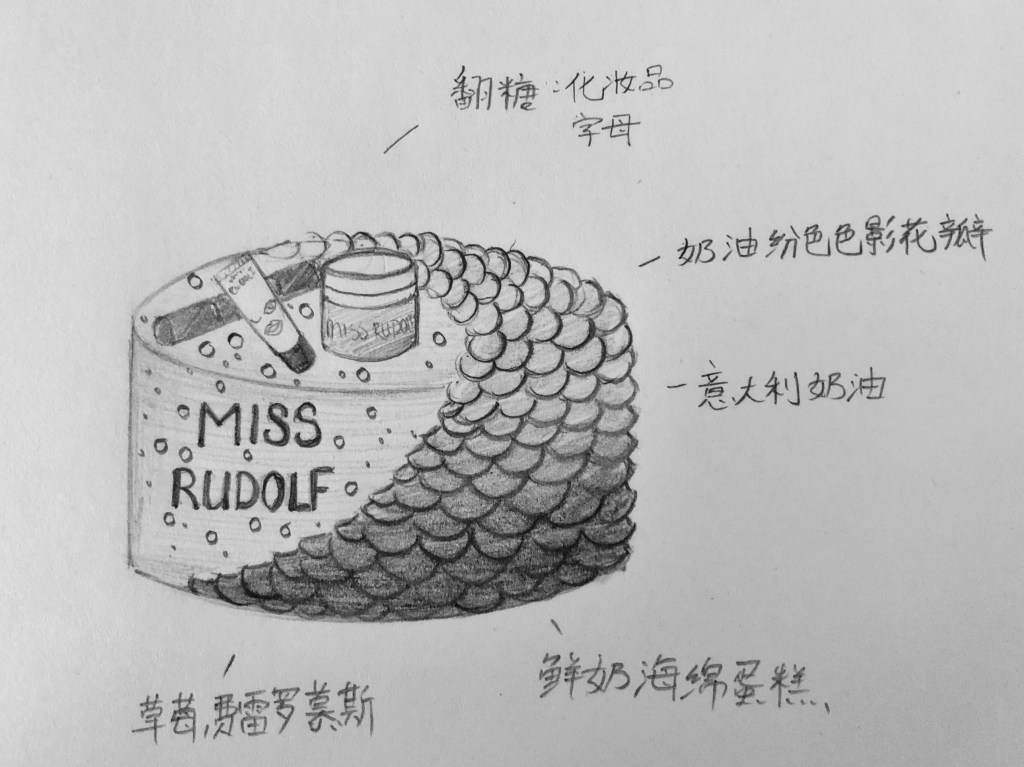 翻糖:化妆品
字母
奶油纷色色影花瓣
意大利奶油
MISS RUDOLF
MISS
RUDOLF
草莓,费雷罗慕斯
鲜奶海绵蛋糕,